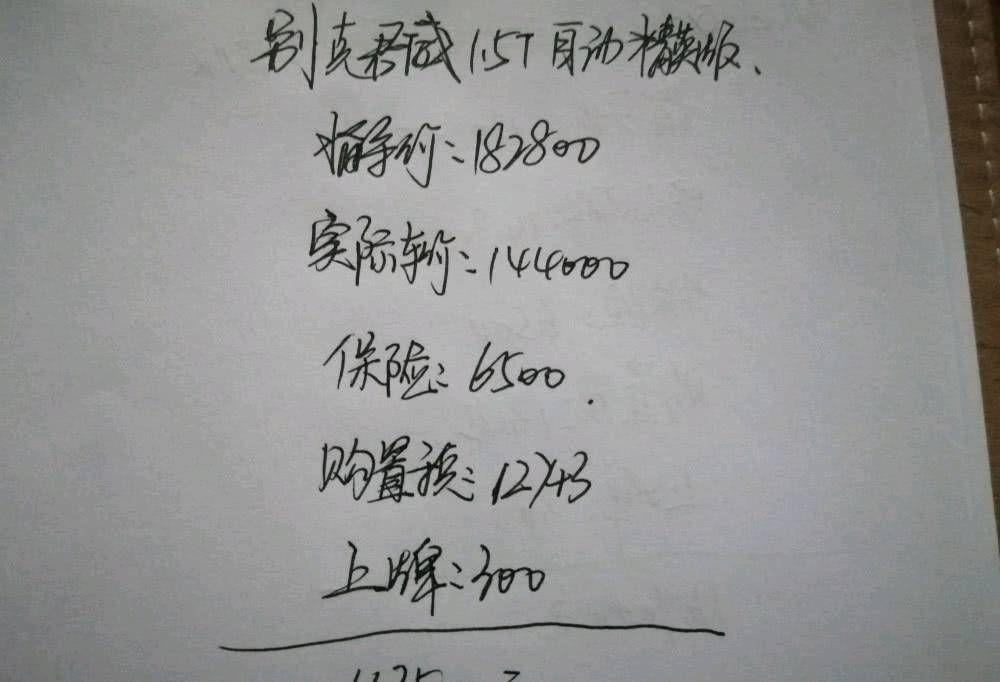 别克君威1.5T自动精英版、
指导价:182800
实际车价:144000
保险:6500.
购置税:12743
上牌:300